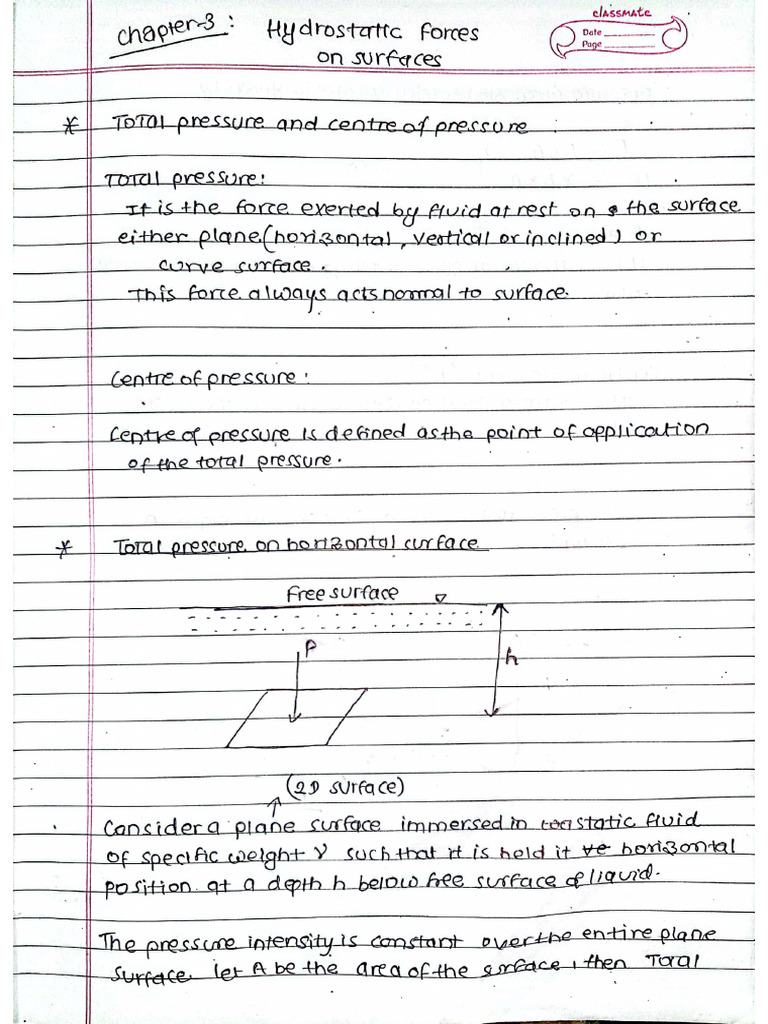 chapter-3: Hydrostatic forces
on surfaces
classmate
Date
Page
* Total pressure and centre of pressure :
Total pressure:
It is the force exerted by fluid at rest on the surface
either plane(horizontal, vertical or inclined) or
curve surface.
This force always acts normal to surface.
Centre of pressure:
Centre of pressure is defined as the point of application
of the total pressure.
* Total pressure on horizontal surface
free surface
P
h
(2D surface)
Consider a plane surface immersed in static fluid
of specific weight γ such that it is held it horizontal
position at a depth h below free surface of liquid.
The pressure intensity is constant over the entire plane
surface. let A be the area of the surface, then Total